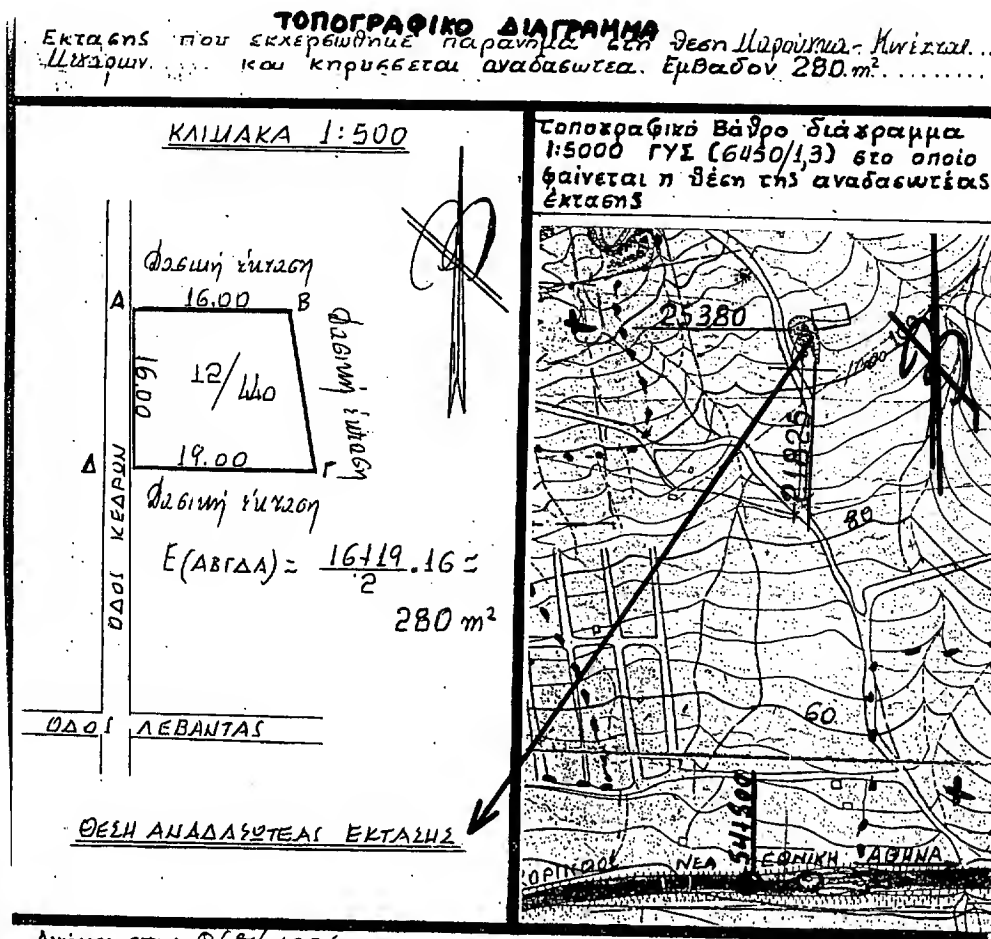 ΤΟΠΟΓΡΑΦΙΚΟ ΔΙΑΓΡΑΜΜΑ
Εκτασης που εκχερσωθηκε παρανημα στη θεση Μαρούγκα - Κινέττας..
Μεγάρων..... και κηρυσσεται αναδασωτεα. Εμβαδον 280.m²........
ΚΛΙΜΑΚΑ 1:500
Δασική έκταση
16.00
Α
Β
16.00
12/440
Δασική έκταση
Δ
19.00
Γ
Δασική έκταση
ΟΔΟΣ ΚΕΔΡΩΝ
Ε(ΑΒΓΔΑ) = 16+19/2 .16 =
280 m²
ΟΔΟΣ ΛΕΒΑΝΤΑΣ
ΘΕΣΗ ΑΝΑΔΑΣΩΤΕΑΣ ΕΚΤΑΣΗΣ
Τοπογραφικό Βάθρο διάγραμμα
1:5000 ΓΥΣ (6450/1,3) στο οποίο
φαίνεται η θέση της αναδασωτέας
έκτασης
25380
21825
80
60
541500
ΝΕΑ ΕΘΝΙΚΗ ΑΘΗΝΑ